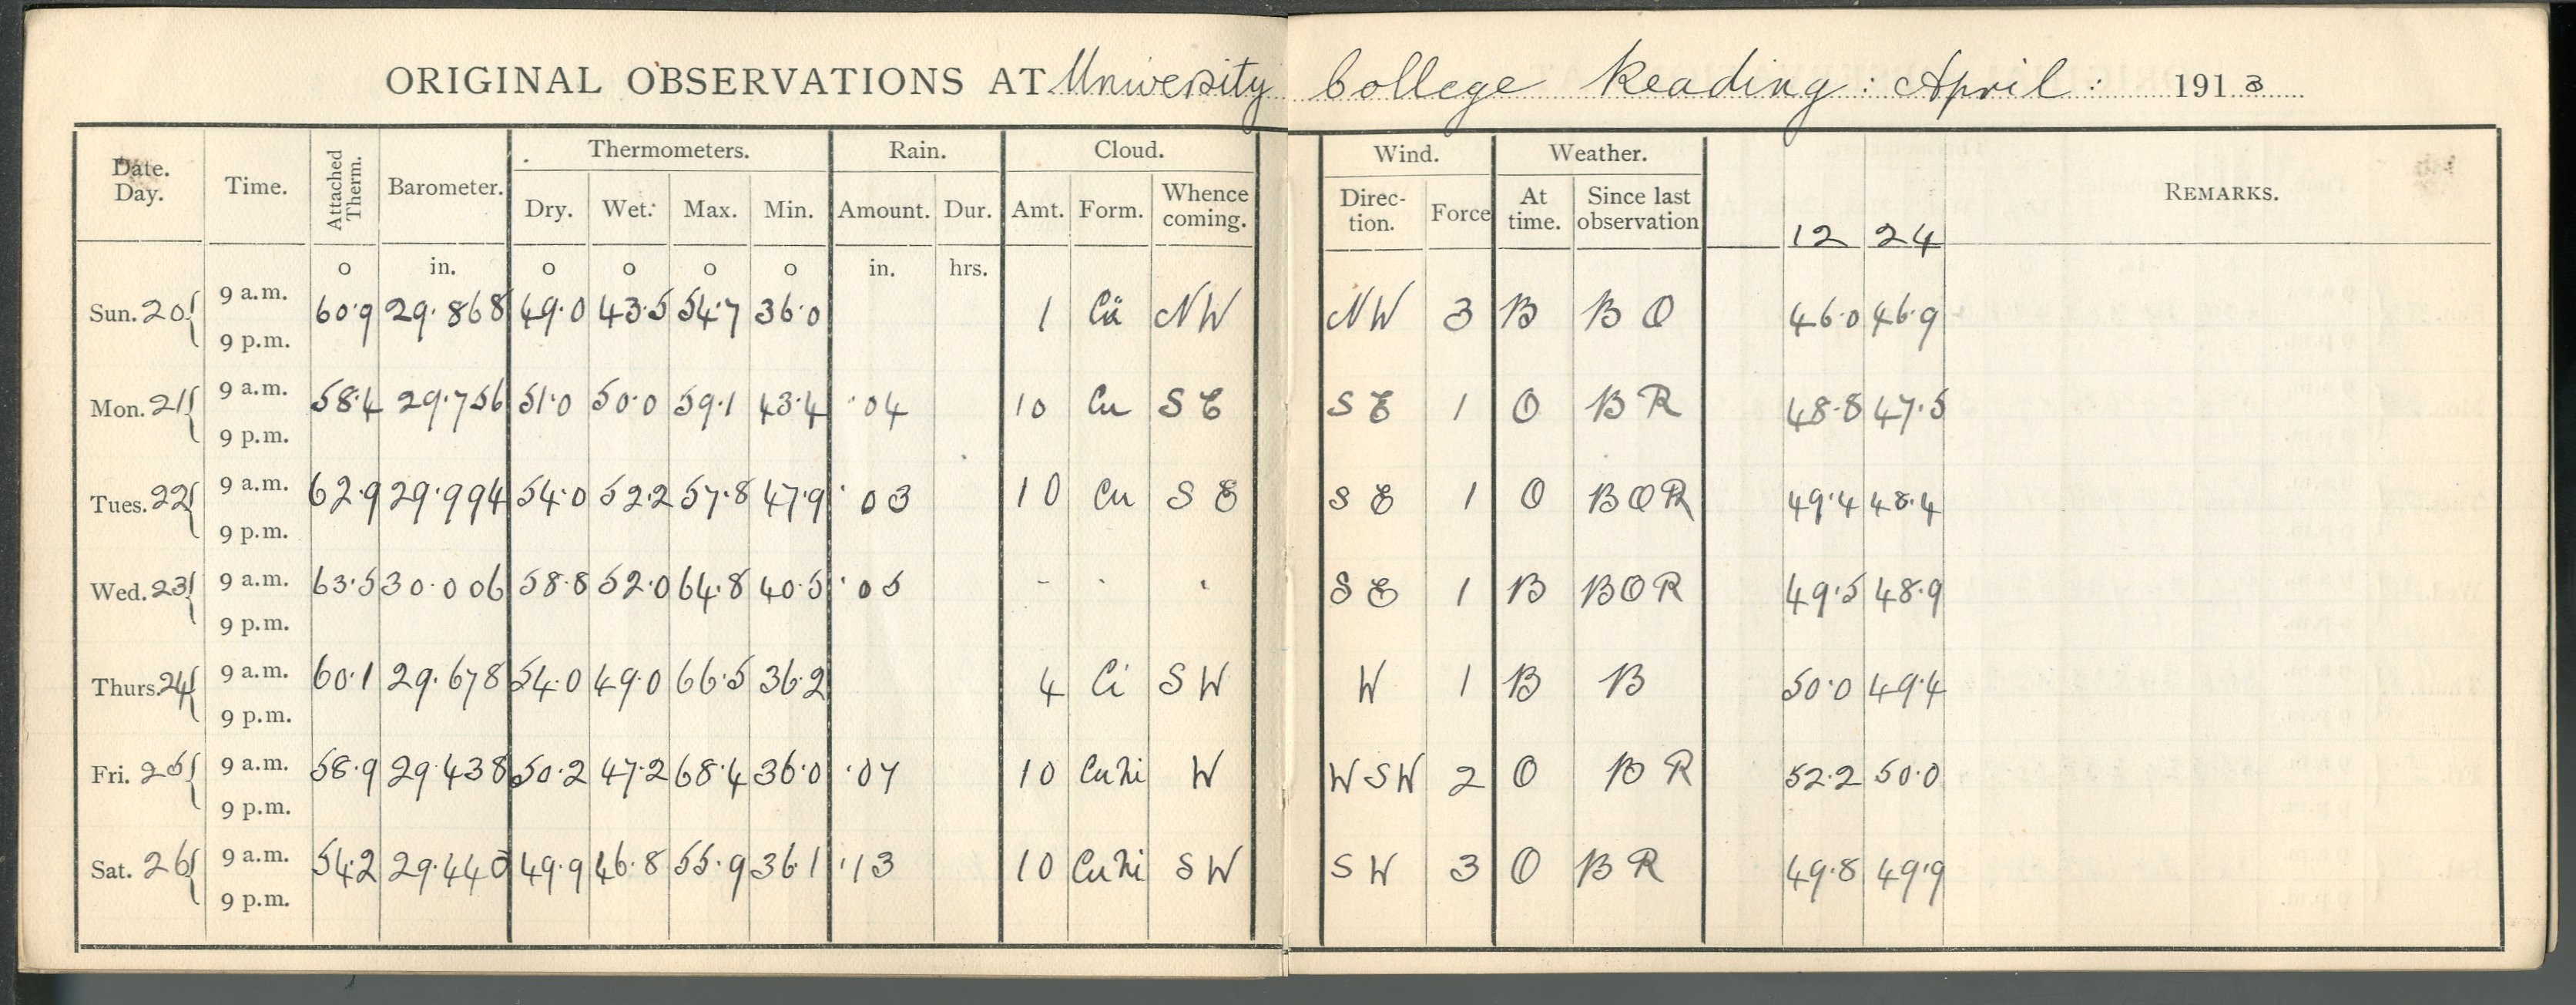 ORIGINAL OBSERVATIONS AT University College Reading: April: 1913
Date. Day. Time. Attached Therm. Barometer. Thermometers. Dry. Wet. Max. Min. Rain. Amount. Dur. Cloud. Amt. Form. Whence coming. Wind. Direc- tion. Force Weather. At time. Since last observation 12 24 REMARKS.
o in. o o o o in. hrs.
Sun. 20 { 9 a.m. 60·9 29·868 49·0 43·5 54·7 36·0 1 Cu NW NW 3 B B O 46·0 46·9
9 p.m.
Mon. 21 { 9 a.m. 58·4 29·756 51·0 50·0 59·1 43·4 ·04 10 Cu S E S E 1 O B R 48·8 47·5
9 p.m.
Tues. 22 { 9 a.m. 62·9 29·994 54·0 52·2 57·8 47·9 ·03 10 Cu S E S E 1 O B O R 49·4 48·4
9 p.m.
Wed. 23 { 9 a.m. 63·5 30·006 58·8 52·0 64·8 40·5 ·05 - · · S E 1 B B O R 49·5 48·9
9 p.m.
Thurs. 24 { 9 a.m. 60·1 29·678 54·0 49·0 66·5 36·2 4 Ci S W W 1 B B 50·0 49·4
9 p.m.
Fri. 25 { 9 a.m. 58·9 29·438 50·2 47·2 68·4 36·0 ·07 10 CuNi W W S W 2 O B R 52·2 50·0
9 p.m.
Sat. 26 { 9 a.m. 54·2 29·440 49·9 46·8 55·9 36·1 ·13 10 CuNi S W S W 3 O B R 49·8 49·9
9 p.m.